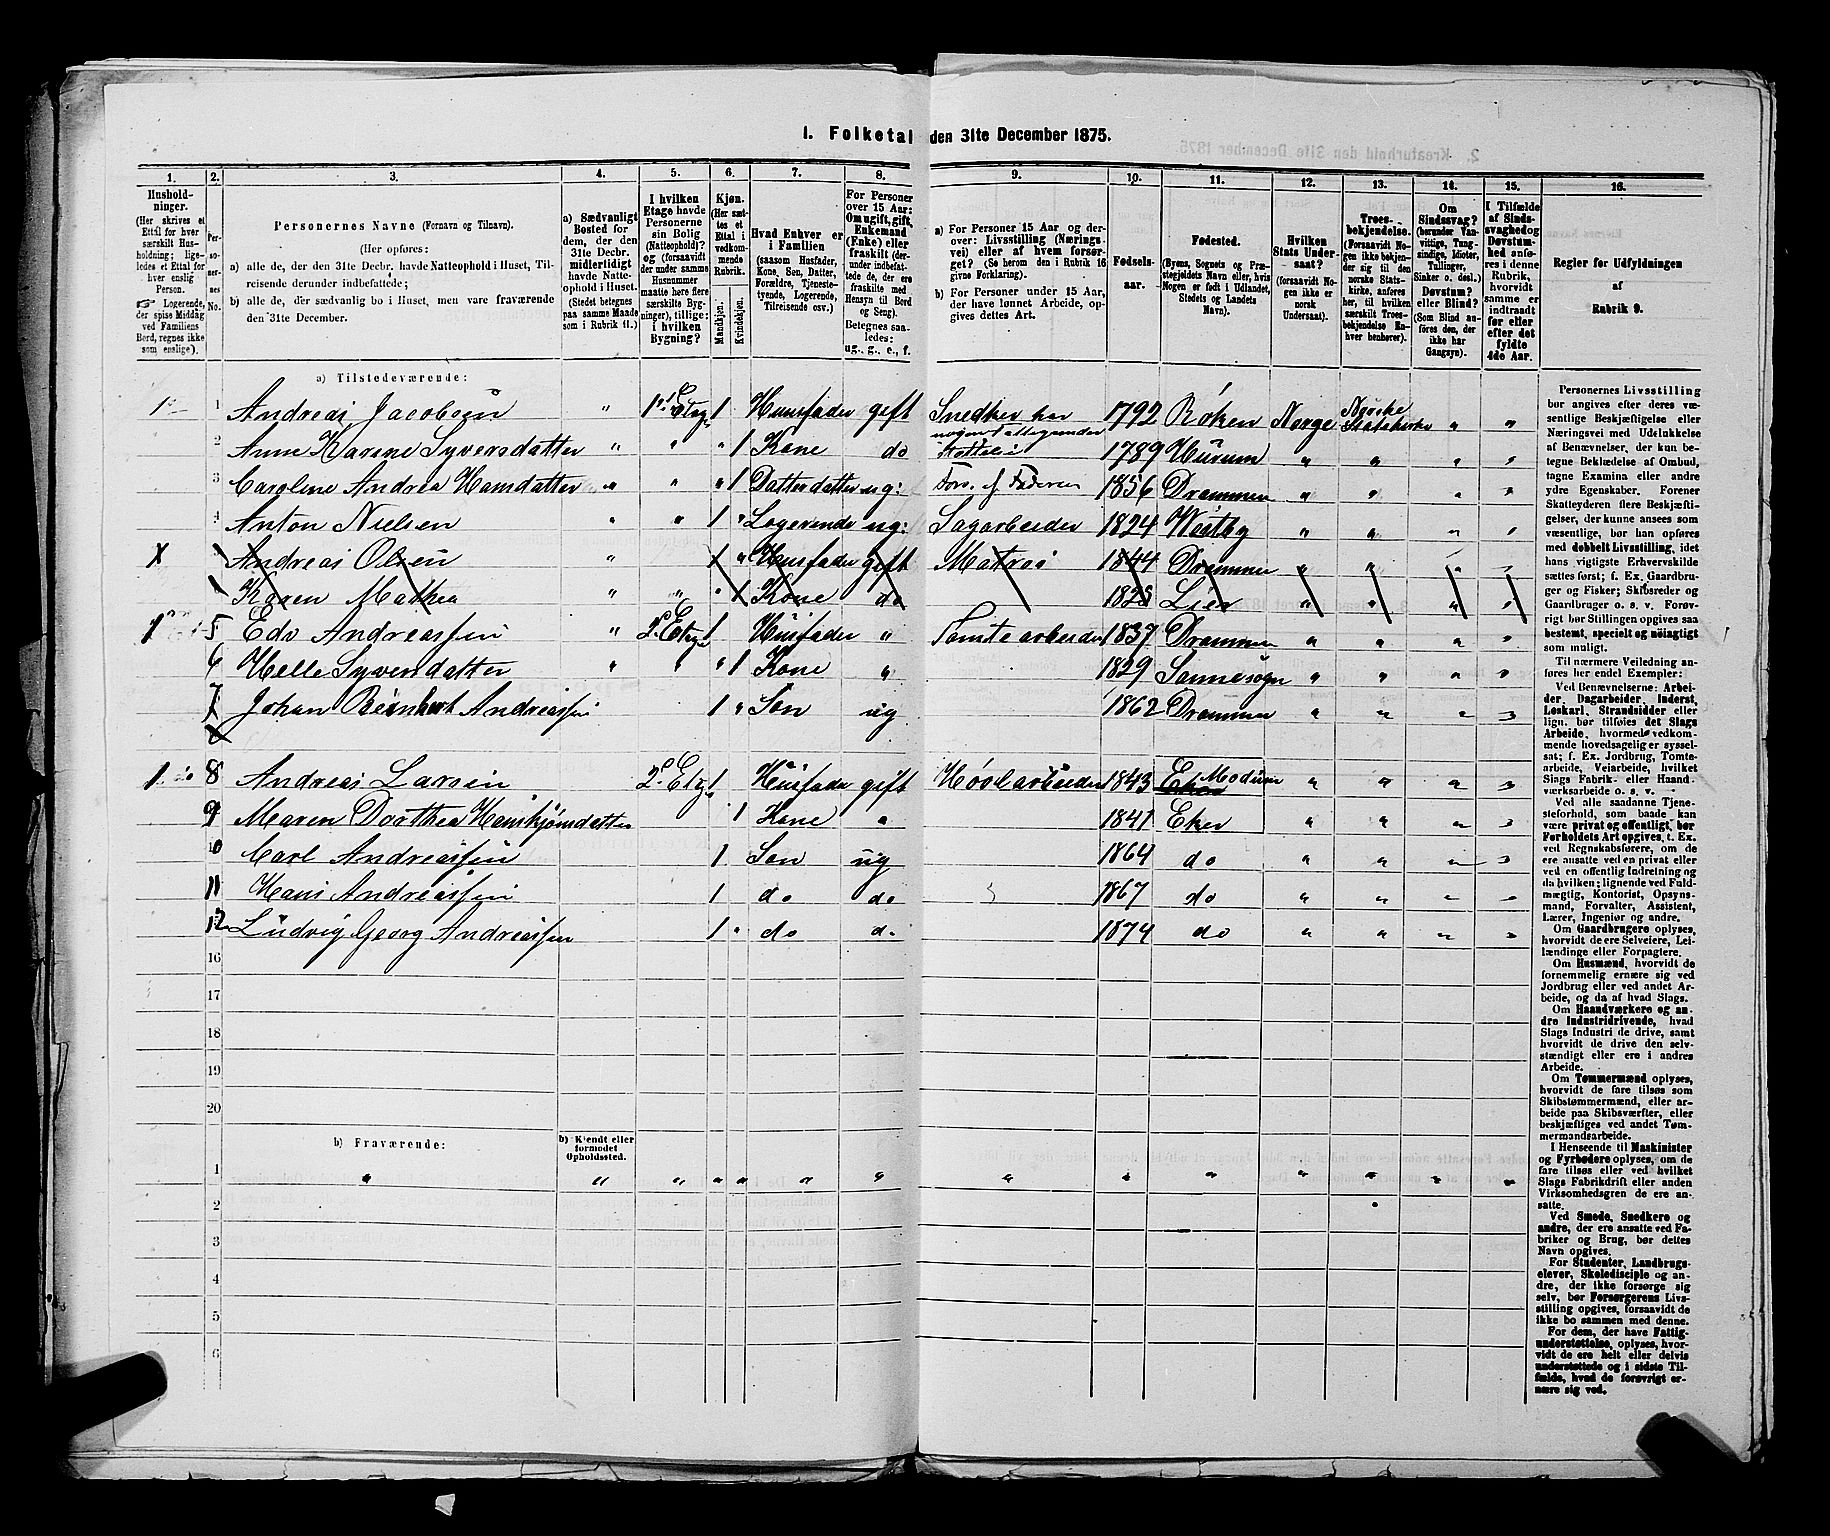 I. Folketal den 31te December 1875.
1. 2. 3. 4. 5. 6. 7. 8. 9. 10. 11. 12. 13. 14. 15. 16.
Husholdninger.
(Her skrives et
Ettal for hver
særskilt Husholdning;
ligeledes et Ettal for
hver enslig
Person.
☞ Logerende,
der spise Middag
ved Familiens
Bord, regnes ikke
som enslige).
Personernes No.
Personernes Navne (Fornavn og Tilnavn).
(Her opføres:
a) alle de, der den 31te Decbr. havde Natteophold i Huset, Tilreisende derunder indbefattede;
b) alle de, der sædvanlig bo i Huset, men vare fraværende
den 31te December.
a) Sædvanligt
Bosted for
dem, der den
31te Decbr.
midlertidigt
havde Natteophold i Huset.
(Stedet betegnes
paa samme Maade
som i Rubrik 11.)
I hvilken
Etage havde
Personerne
sin Bolig
(Natteophold)?
og (forsaavidt
der under samme
Husnummer
maatte høre flere
særskilte Bygninger), tillige:
i hvilken
Bygning?
Kjøn.
(Her sættes et
Ettal i
vedkommende
Rubrik.
Mandkjøn.
Kvindekjøn.
Hvad Enhver er
i Familien
(saasom Husfader,
Kone, Søn, Datter,
Forældre, Tjenestetyende, Logerende,
Tilreisende osv.)
For Personer
over 15 Aar:
Om ugift, gift,
Enkemand
(Enke) eller
fraskilt (derunder indbefattede de, der ere
fraskilte med
Hensyn til Bord
og Seng).
Betegnes saaledes:
ug., g., e., f.
a) For Personer 15 Aar og derover: Livsstilling (Næringsvei) eller af hvem forsørget? (Se herom den i Rubrik 16
givne Forklaring).
b) For Personer under 15 Aar,
der have lønnet Arbeide, opgives dettes Art.
Fødselsaar.
Fødested.
(Byens, Sognets og Præstegjeldets Navn eller, hvis
Nogen er født i Udlandet,
Stedets og Landets
Navn).
Hvilken
Stats Undersaat?
(forsaavidt Nogen ikke er
norsk
Undersaat).
Troesbekjendelse.
(Forsaavidt Nogen ikke bekjender sig til den
norske Statskirke, anføres
her, til hvilken
særskilt Troesbekjendelse Enhver henhører).
Om
Sindssvag?
(herunder Vanvittige, Tungsindige, Idioter,
Tullinger,
Sinker o. desl.)
Døvstum?
eller Blind?
(Som Blind anføres den, der
ikke har
Gangsyn).
I Tilfælde
af Sindssvaghed og
Døvstumhed anføres i denne
Rubrik,
hvorvidt
samme er
indtraadt
før eller
efter det
fyldte
4de Aar.
Regler for Udfyldningen
af
Rubrik 9.
a) Tilstedeværende:
1 Andreas Jacobsen " 1. Etag 1 Huusfader gift Snedker har 1792 Røken Norge Norske Statskirke " "
2 Anne Karine Syversdatter " " " 1 Kone do 1789 Hurum " " " "
3 Caroline Andrea Hansdatter " " " 1 Datterdatter ug: Fors. af Faderen 1856 Drammen " " " "
4 Anton Nielsen " " 1 " Logerende ug: Sagarbeider 1824 Westby " " " "
X Andreas Olsen " 1 " Husfader gift Matros 1844 Drammen " " " "
Karen Mathea " " " 1 Kone do 1828 Lier " " " "
1 5 Edv Andreassen " 2. Etag 1 Husfader " Tomtearbeider 1837 Drammen " " " "
6 Helle Syversdatter " " " 1 Kone " 1829 Sannesogn " " " "
7 Johan Reinhart Andreassen 1 " Søn ug 1862 Drammen " " " "
1 8 Andreas Larsen 2. Etag 1 Husfader gift Høvlearbeider 1843 Modum " " " "
9 Maren Dorthea 1 Kone " 1841 Eker " " " "
10 Carl Andreassen 1 Søn ug 1864 do " " " "
11 Hans Andreassen 1 do do 1867 do " " " "
12 Ludvig Georg Andreassen 1 " do do 1874 do " " " "
16
17
18
19
20
b) Fraværende:
b) Kjendt eller
formodet
Opholdssted.
1 " " " " " " " " " " " " " "
2
3
4
5
6
Personernes Livsstilling
bør angives efter deres væsentlige Beskjæftigelse eller
Næringsvei med Udelukkelse
af Benævnelser, der kun betegne Beklædelse af Ombud,
tagne Examina eller andre
ydre Egenskaber. Forener
Skatteyderen flere Beskjæftigelser, der kunne ansees som
væsentlige, bør han opføres
med dobbelt Livsstilling, idet
hans vigtigste Erhvervskilde
sættes først; f. Ex. Gaardbruger og Fisker; Skibsreder og
Gaardbruger o. s. v. Forøvrigt bør Stillingen opgives saa
bestemt, specielt og nöiagtigt
som muligt.
Til nærmere Veiledning anføres her endel Exempler:
Ved Benævnelserne: Arbeider, Dagarbeider, Inderst,
Løskarl, Strandsidder eller
lign. bør tilføies det Slags
Arbeide, hvormed vedkommende hovedsagelig er sysselsat; f. Ex. Jordbrug, Tomtearbeide, Veiarbeide, hvilket
Slags Fabrik- eller Haandværksarbeide o. s. v.
Ved alle saadanne Tjenesteforhold, som baade kan
være privat og offentligt, bør
Forholdets Art opgives, t. Ex.
ved Regnskabsførere, om de
ere ansatte ved en privat eller
ved en offentlig Indretning og
da hvilken; lignende ved Fuldmægtig, Kontorist, Opsynsmand, Forvalter, Assistent,
Lærer, Ingeniør og andre.
Om Gaardbrugere oplyses,
hvorvidt de ere Selveiere, Leilændinge eller Forpagtere.
Om Husmænd, hvorvidt de
fornemmelig ernære sig ved
Jordbrug eller ved andet Arbeide, og da af hvad Slags.
Om Haandværkere og andre Industridrivende, hvad
Slags Industri de drive, samt
hvorvidt de drive den selvstændigt eller ere i andres
Arbeide.
Om Tømmermænd oplyses,
hvorvidt de fare tilsøs som
Skibstømmermænd, eller arbeide paa Skibsværfter, eller
beskjæftiges ved andet Tømmermandsarbeide.
I Henseende til Maskinister
og Fyrbødere oplyses, om de
fare tilsøs eller ved hvilket
Slags Fabrikdrift eller anden
Virksomhedsgren de ere ansatte.
Ved Smede, Snedkere og
andre, der ere ansatte ved Fabriker og Brug, bør dettes
Navn opgives.
For Studenter, Landbrugselever, Skoledisciple og andre, der ikke forsørge sig
selv, bør Forsørgerens Livsstilling opgives, forsaavidt de
ikke bo sammen med denne.
For dem, der have Fattigunderstøttelse, oplyses, hvorvidt de ere helt eller delvis
understøttede og i sidste Tilfælde, hvad de forøvrigt ernære sig ved.